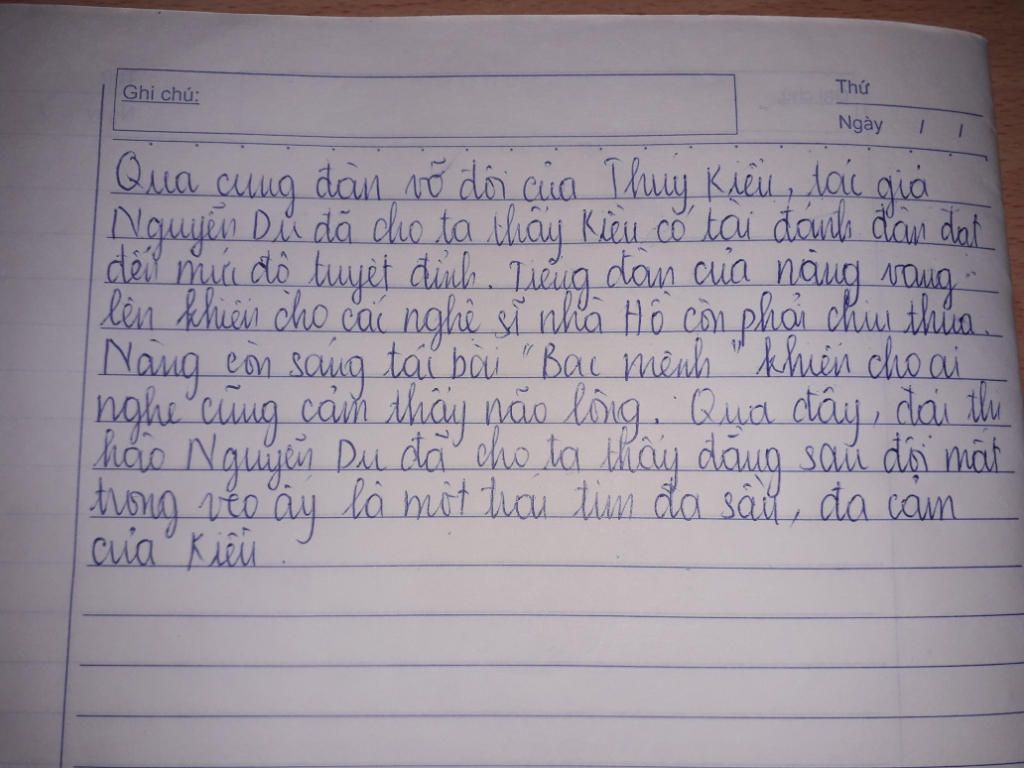 Ghi chú:
Thứ
Ngày / /
Qua cung đàn vỡ đôi của Thúy Kiều, tác giả
Nguyễn Du đã cho ta thấy Kiều có tài đánh đàn đạt
đến mức độ tuyệt đỉnh. Tiếng đàn của nàng vang
lên khiến cho các nghệ sĩ nhà Hồ còn phải chịu thua.
Nàng còn sáng tác bài "Bạc mệnh" khiến cho ai
nghe cũng cảm thấy não lòng. Qua đây, đại thi
hào Nguyễn Du đã cho ta thấy đằng sau đôi mắt
trong veo ấy là một trái tim đa sầu, đa cảm
của Kiều.